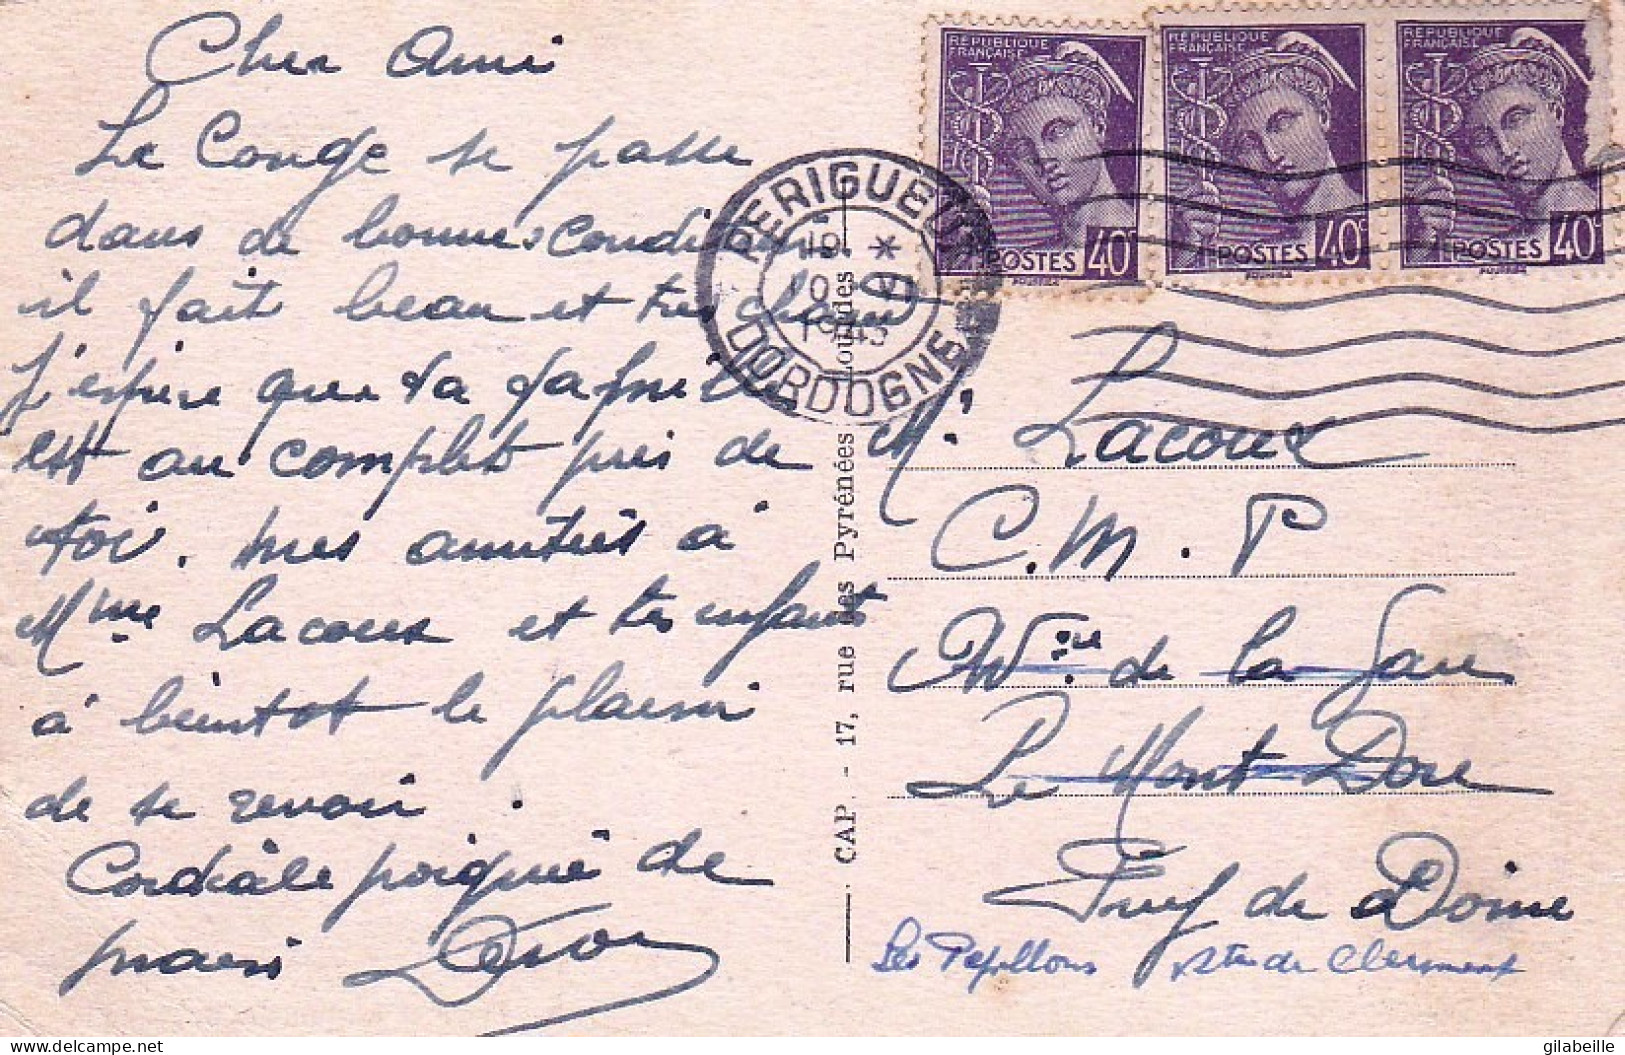 Cher Ami
Le Congé se passe
dans de bonnes conditions
il fait beau et très chaud
J'espère que ta
est au complet près de
toi. mes amitiés à
Mme Lacoux et tes enfants
à bientot le plaisir
de se revoir.
Cordiale poignée de
main
PERIGUEUX
19 *
10 - V
1943
DORDOGNE
RÉPUBLIQUE
FRANÇAISE
POSTES 40c
RÉPUBLIQUE
FRANÇAISE
POSTES 40c
RÉPUBLIQUE
FRANÇAISE
POSTES 40c
CAP - 17, rue des Pyrénées Lourdes
M. Lacoux
C.M.P
de la Gare
Le Mont Dore
Puy de Dôme
Les Papillons rte de Clermont
delcampe.net
gilabeille